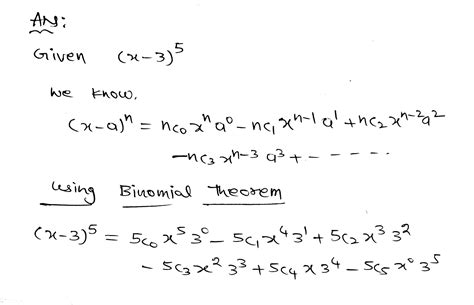 AN:
Given (x-3)⁵
We know,
(x-a)ⁿ = nc₀ xⁿ a⁰ - nc₁ xⁿ⁻¹ a¹ + nc₂ xⁿ⁻² a²
- nc₃ xⁿ⁻³ a³ + - - - - -
Using Binomial theorem
(x-3)⁵ = 5c₀ x⁵ 3⁰ - 5c₁ x⁴ 3¹ + 5c₂ x³ 3²
- 5c₃ x² 3³ + 5c₄ x 3⁴ - 5c₅ x⁰ 3⁵